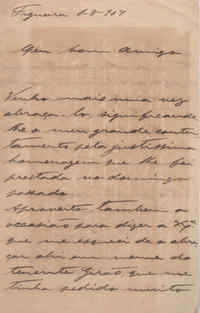 Figueira 6-8-917
Meu bom amigo
Venho mais uma vez
abraçal-o, significando-
lhe o meu grande conten-
tamento pela justissima
homenagem que lhe foi
prestada no domingo
passado.
Aproveito tambem a
occasião para dizer a
que me esqueci de o abra-
çar ahi em nome do
tenente que me
tinha pedido muito